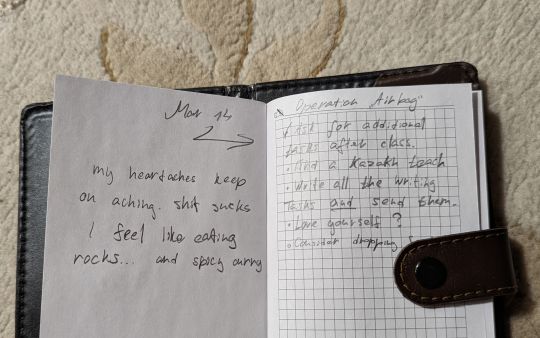 Mar 14
my heartaches keep
on aching. shit sucks
I feel like eating
rocks... and spicy curry
Operation "Airbag"
Ask for additional
tasks after class.
• Find a Kazakh teach
• Write all the writing
Tasks and send them.
• Love yourself?
• Consider dropping